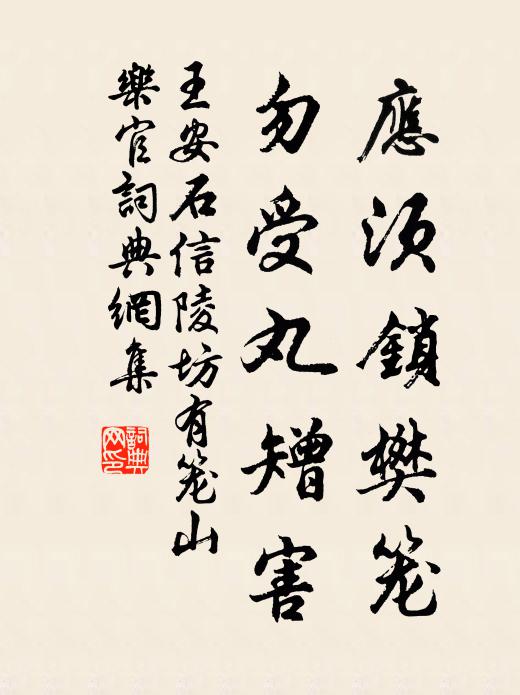 應須鎖樊笼
勿受丸矰害
王安石信陵坊有笼山
樂官詞典網集
詞典
网印